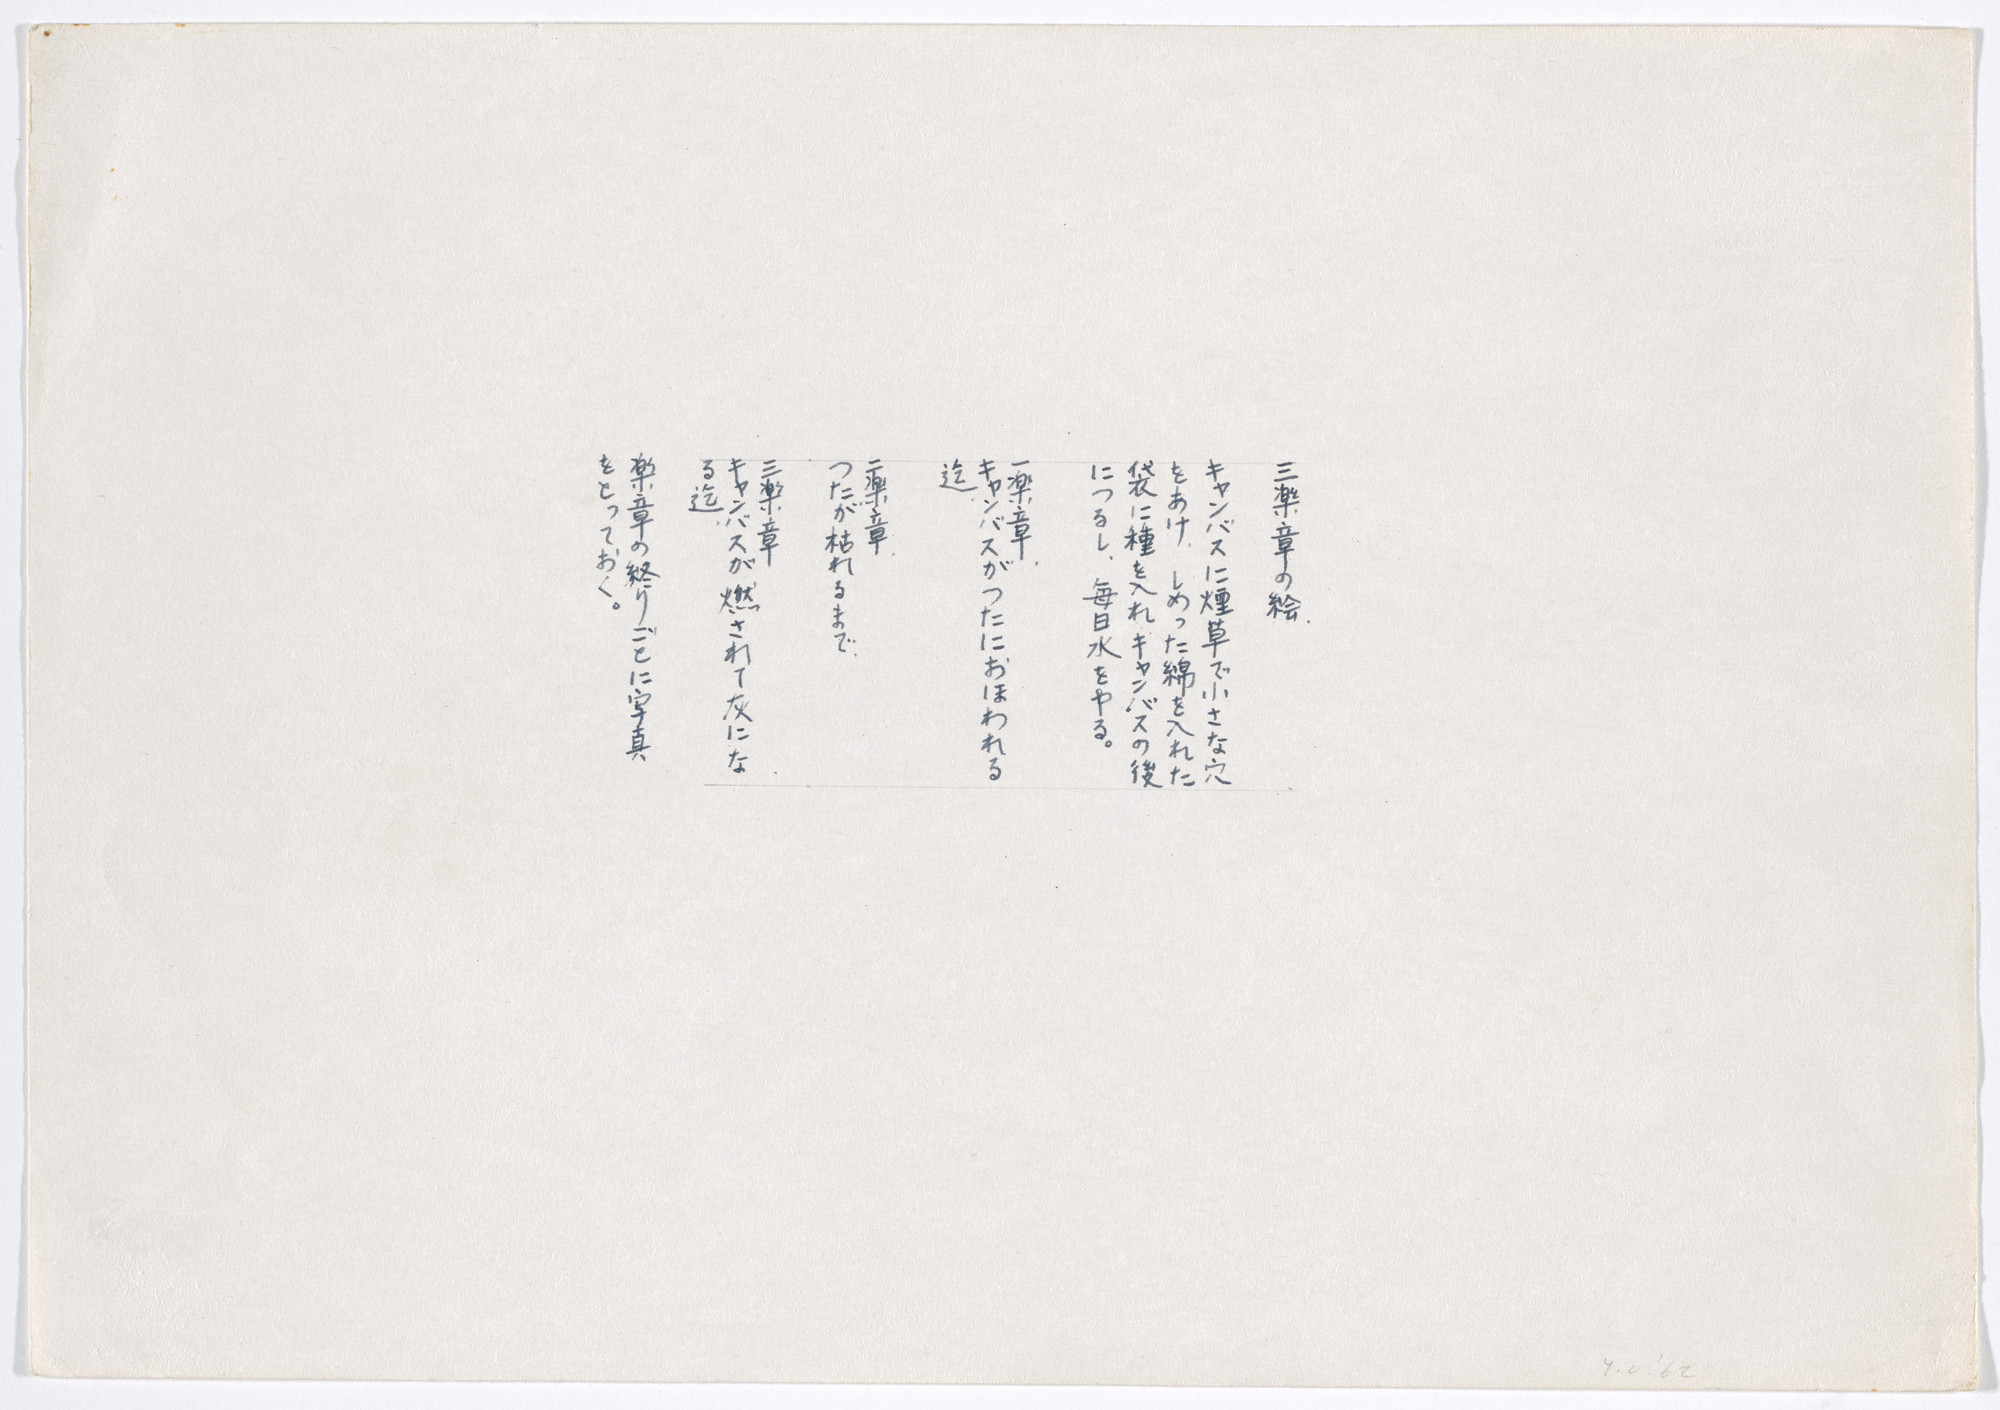 三楽章の絵.
キャンバスに煙草で小さな穴
をあけ、しめった綿を入れた
袋に種を入れキャンバスの後
につるし、毎日水をやる。
一楽章.
キャンバスがつたにおほわれる
迄.
二楽章.
つたが枯れるまで.
三楽章
キャンバスが燃されて灰にな
る迄.
楽章の終りごとに写真
をとっておく。
y.o.'62